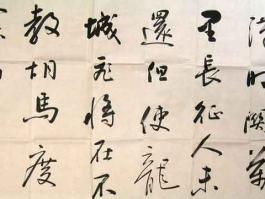 漢時關萬
里長征人未
還但使龍
城飛將在不
教胡馬度